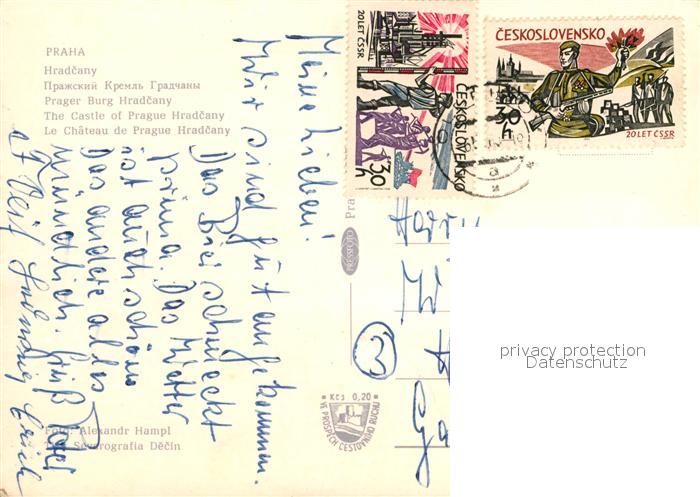 PRAHA
Hradčany
Пражский Кремль Градчаны
Prager Burg Hradčany
The Castle of Prague Hradčany
Le Château de Prague Hradčany
Meine Lieben!
Wir sind gut angekommen.
Das Bier schmeckt
prima. Das Wetter
ist auch schön
Das andere alles
mündlich. Gruß
Foto: Alexandr Hampl
Severografia Děčín
20 LET ČSSR
ČESKOSLOVENSKO
30 h
ČESKOSLOVENSKO
30 h
20 LET ČSSR
PRESSFOTO
Pra
3
Kčs 0,20
VE PROSPĚCH CESTOVNÍHO RUCHU
privacy protection
Datenschutz